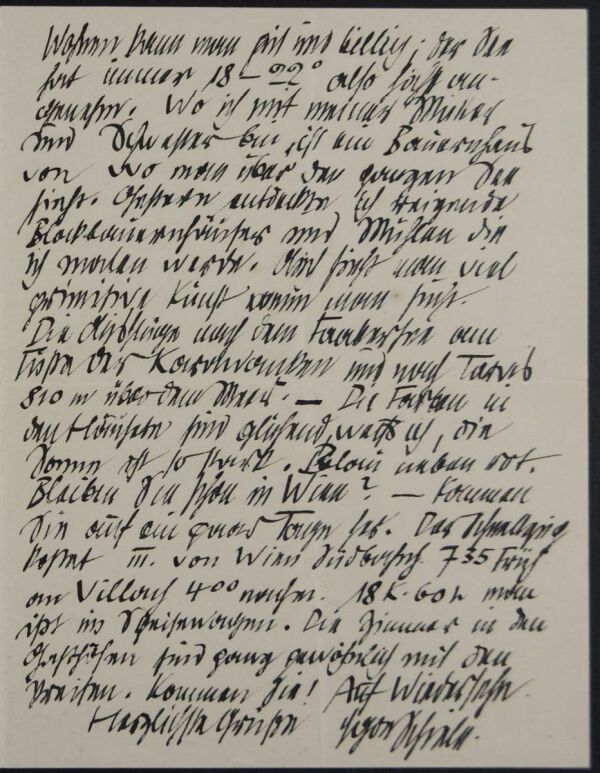 Wohnen kann man gut und billig; der See
hat immer 18 – 22° also sehr an-
genehm. Wo ich mit meiner Mutter
und Schwester bin, ist ein Bauernhaus
von wo man über den ganzen See
sieht. Gestern entdeckte ich reizende
Blockbauernhäuser und Mühlen die
ich malen werde. Auch sieht man viel
primitive Kunst wenn man sucht.
Die Ausflüge nach dem Faakersee am
Fusse der Karawanken und nach Tarvis
810 m über dem Meer. — Die Farben in
den sind glühend, weiß ich, die
Sonne ist so stark. Blau neben rot.
Bleiben Sie schon in Wien? — Kommen
Sie auf ein paar Tage her. Der Schnellzug
kostet III. von Wien Südbahnh. 7 35 Früh
an Villach 4 00 nachm. 18 K. 60 h man
ißt im Speisewagen. Die Zimmer in den
Gasthöfen sind ganz gewöhnlich mit den
Preisen. Kommen Sie! Auf Wiedersehn
Herzlichste Grüße Egon Schiele.